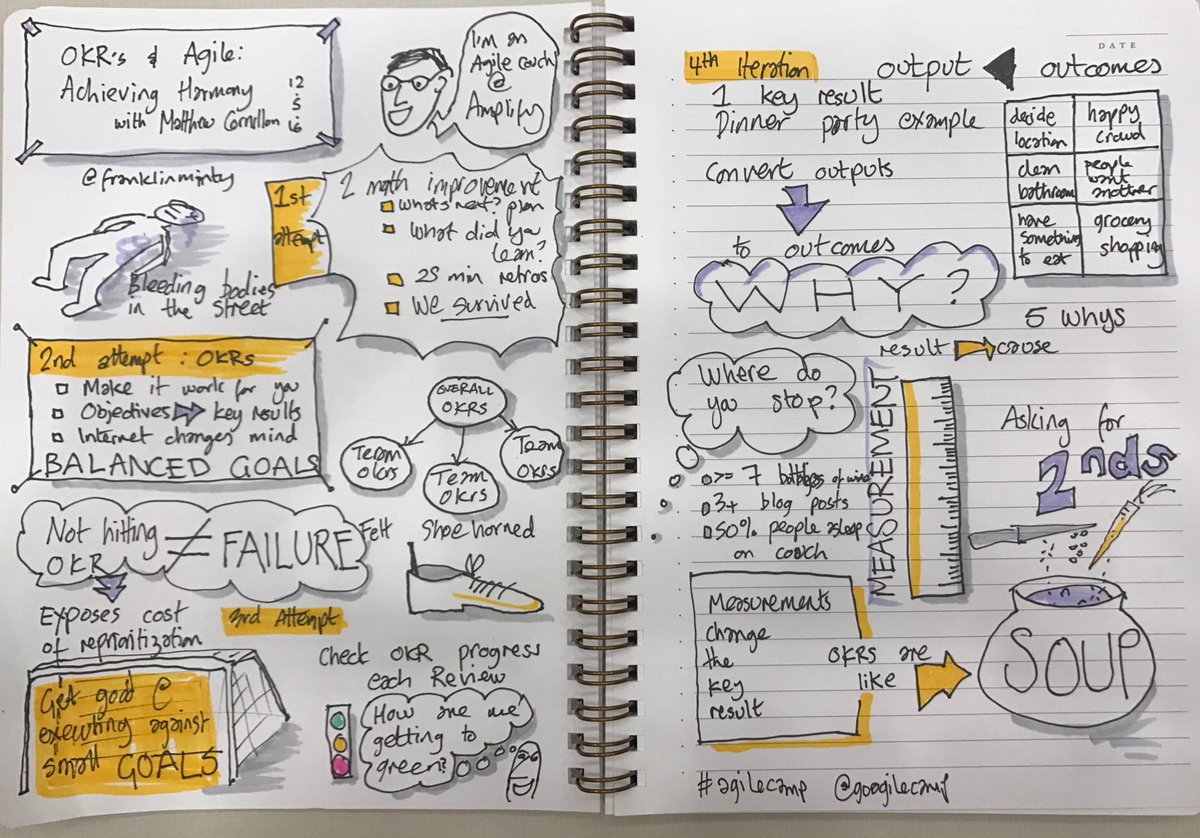 OKR's & Agile:
Achieving Harmony
with Matthew
12
5
16
@franklinminty
I'm an
Agile coach
@
Amplify
1st
attempt
2 month improvement
what's next? plan
What did you
learn?
25 min retros
We survived
Bleeding bodies
in the street
2nd attempt: OKRs
Make it work for you
Objectives key results
Internet changes mind
BALANCED GOALS
OVERALL
OKRs
Team
OKRs
Team
OKRs
Team
OKRs
Not hitting
OKR ≠ FAILURE
Felt
Shoe horned
Exposes cost
of reprioritization
3rd Attempt
Get good @
executing against
small GOALS
Check OKR progress
each Review
How are we
getting to
green?
DATE
4th Iteration
output outcomes
1 key result
Dinner party example
decide
location
happy
crowd
clean
bathroom
people
want
another
have
something
to eat
grocery
shopping
Convert outputs
to outcomes
WHY?
5 whys
result cause
Where do
you stop?
MEASUREMENT
Asking for
2nds
>= 7 bottles of wine
3+ blog posts
50% people asleep
on couch
Measurements
change
the
key
result
OKRs are
like
SOUP
#agilecamp